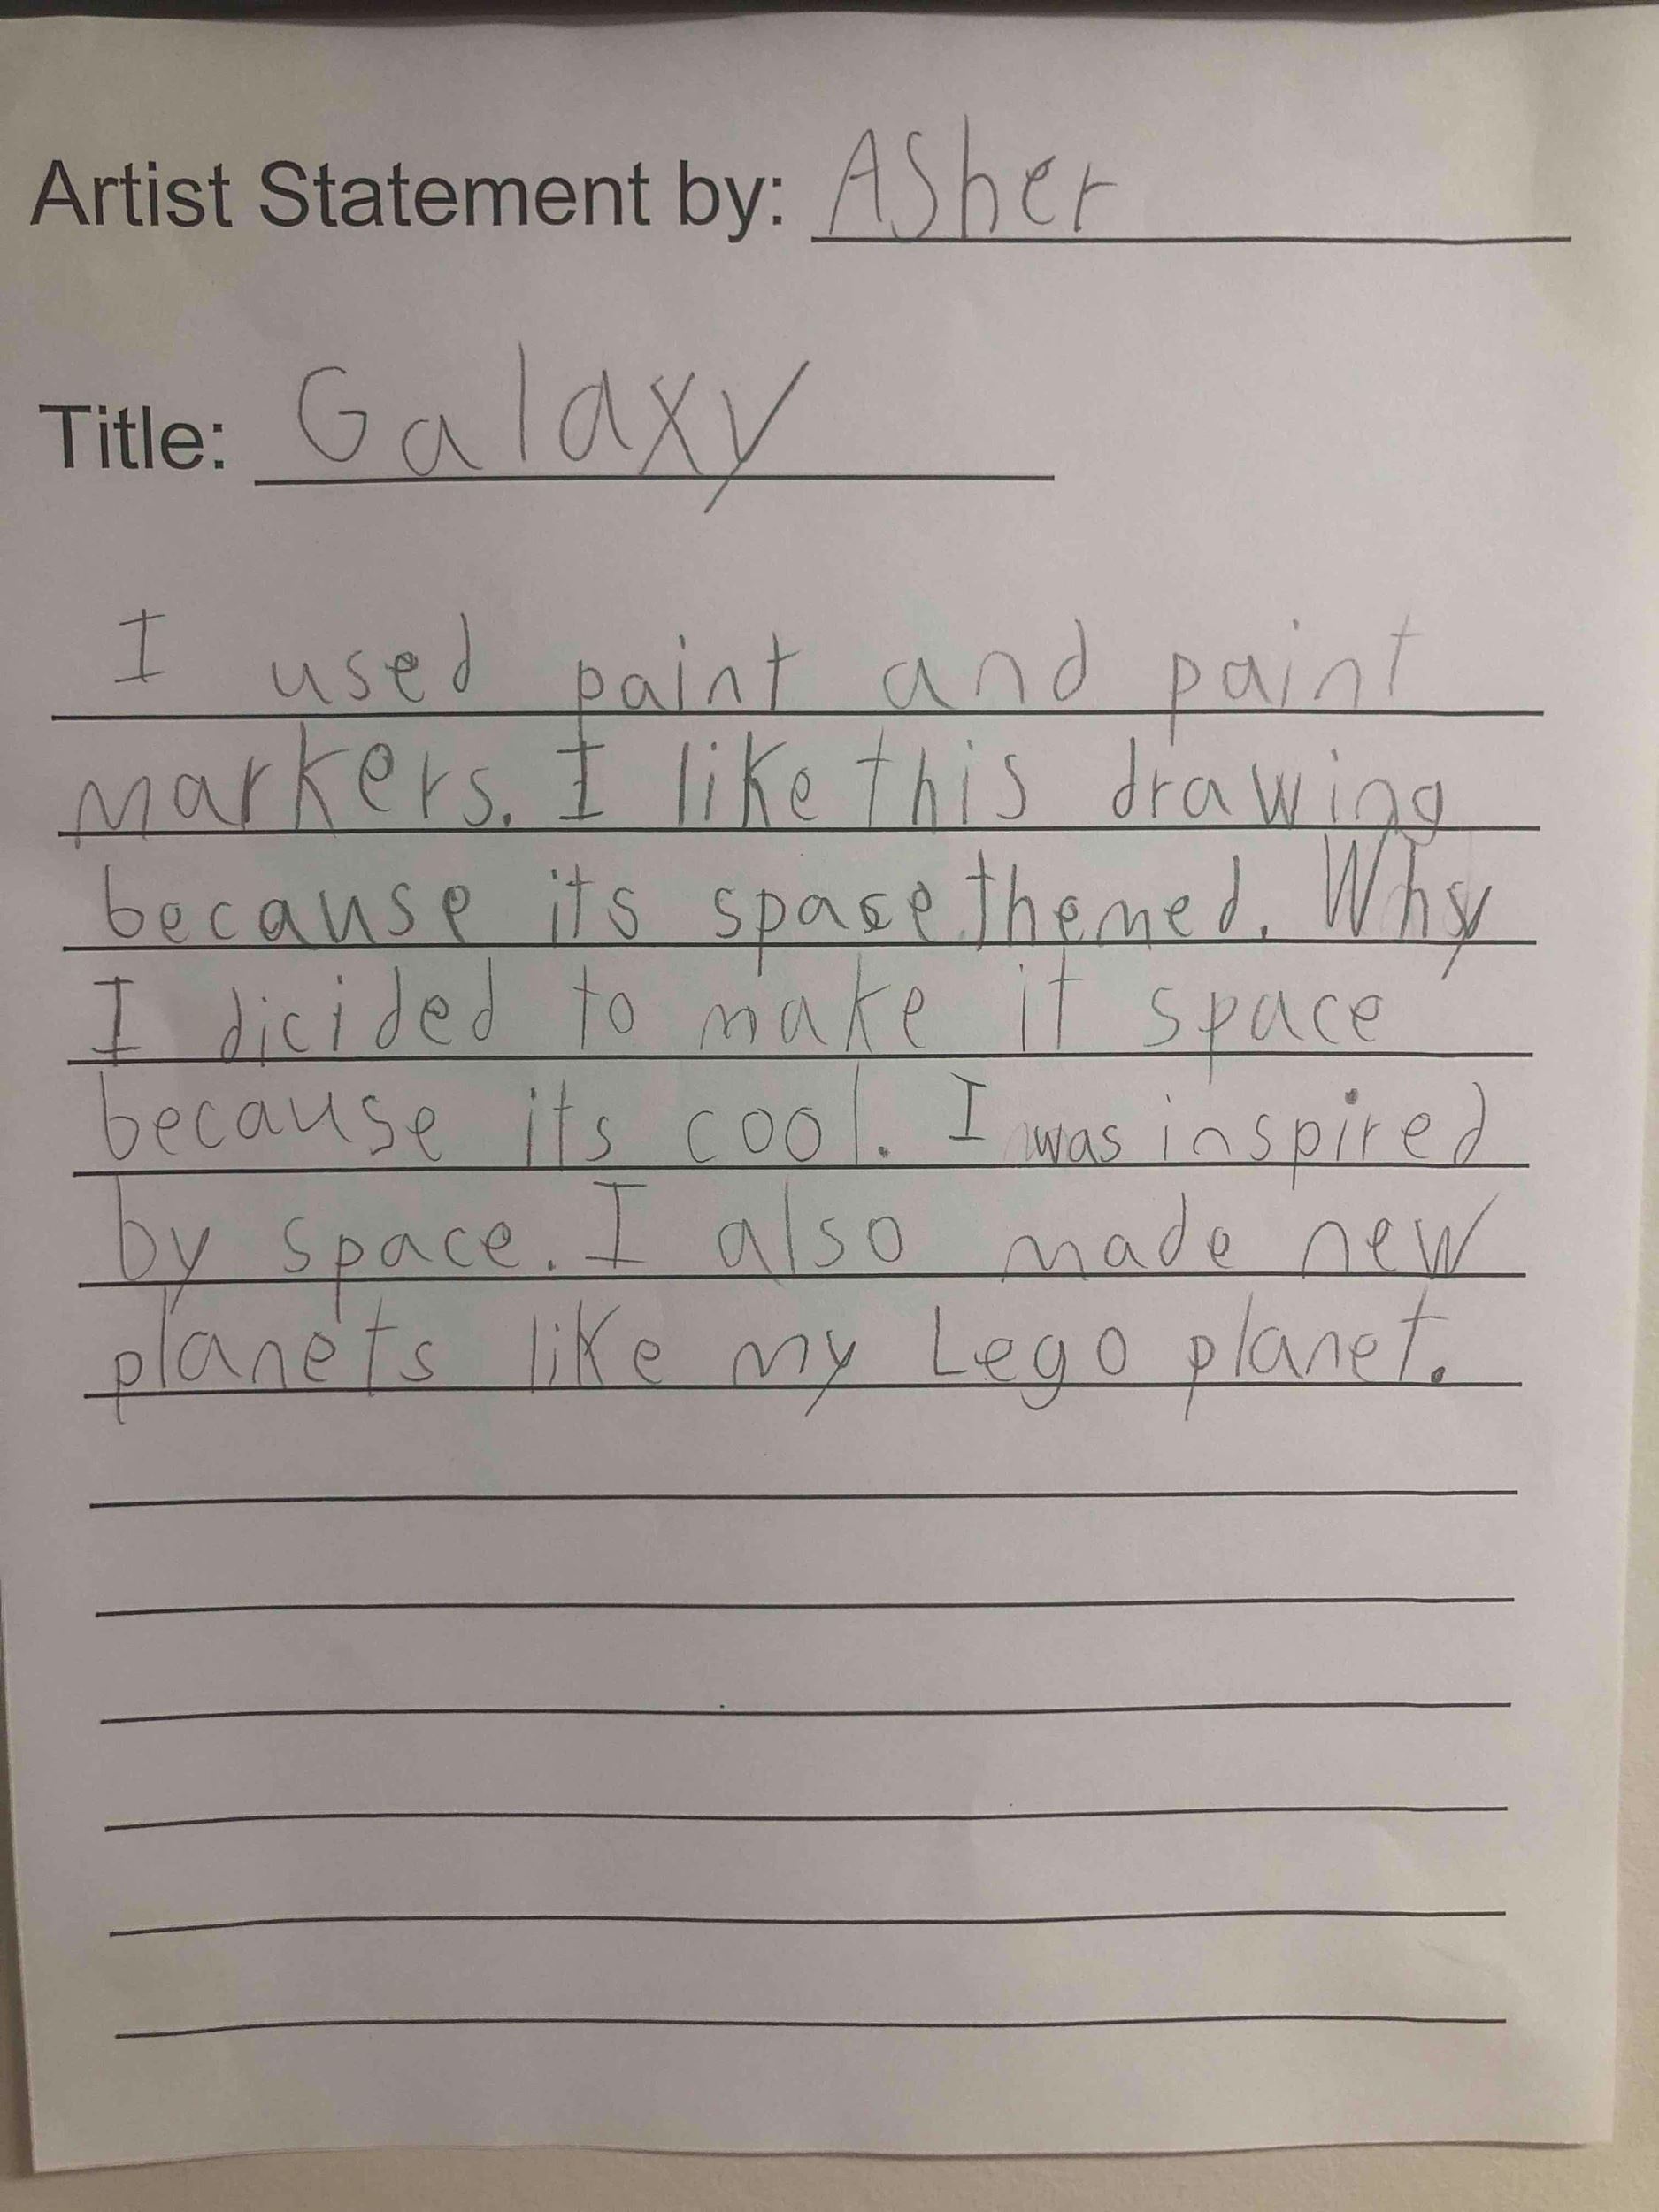 Artist Statement by: Asher
Title: Galaxy
I used paint and paint
markers. I like this drawing
because its space themed. Why
I dicided to make it space
because its cool. I was inspired
by space. I also made new
planets like my Lego planet.